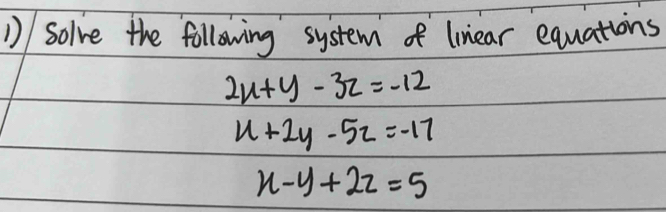 1) Solve the following system of linear equations
2x+y -3z = -12
x+2y -5z = -17
x-y+2z = 5